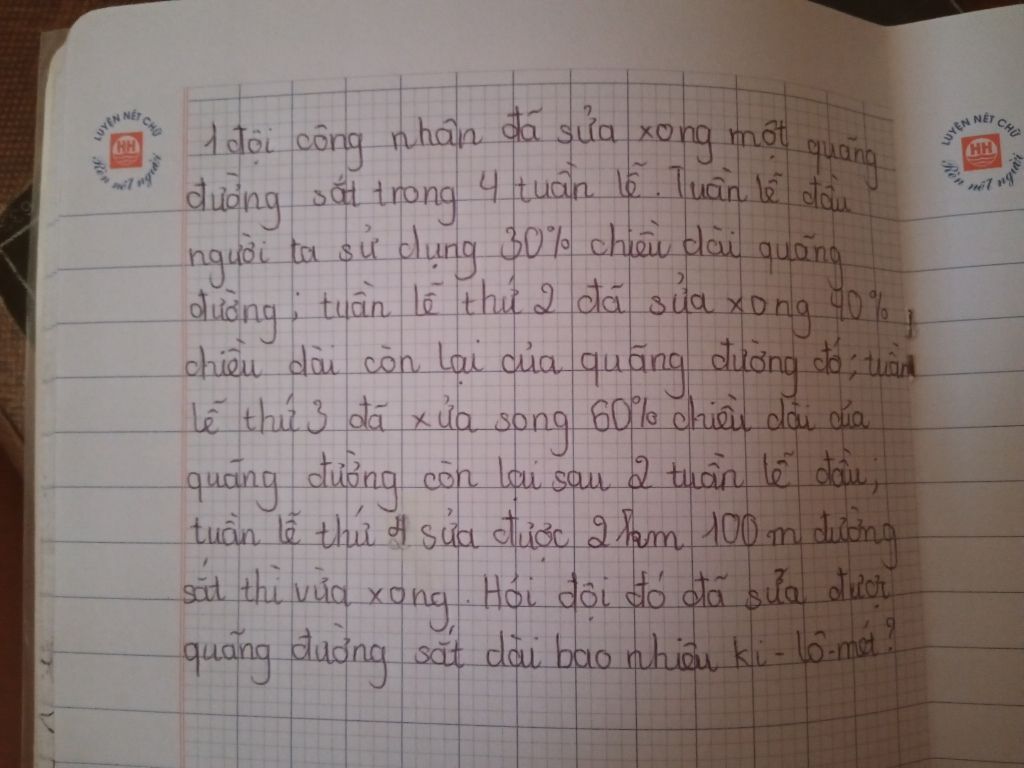 LUYỆN NÉT CHỮ
HH
Rèn nết người
LUYỆN NÉT CHỮ
HH
Rèn nết người
1 đội công nhân đã sửa xong một quãng
đường sắt trong 4 tuần lễ. Tuần lễ đầu
người ta sử dụng 30% chiều dài quãng
đường; tuần lễ thứ 2 đã sửa xong 40%
chiều dài còn lại của quãng đường đó; tuần
lễ thứ 3 đã xửa song 60% chiều dài của
quãng đường còn lại sau 2 tuần lễ đầu;
tuần lễ thứ 4 sửa được 2km 100m đường
sắt thì vừa xong. Hỏi đội đó đã sửa được
quãng đường sắt dài bao nhiêu ki-lô-mét?